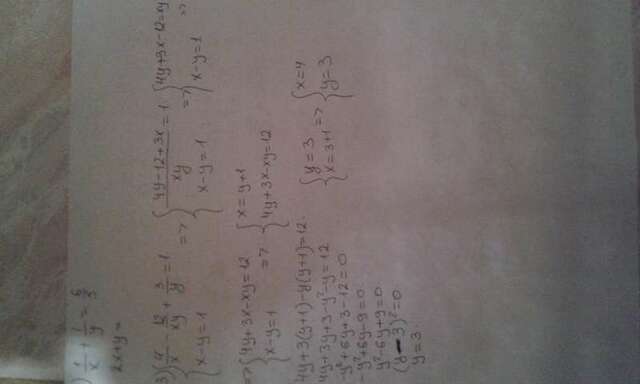 ) { 1/x + 1/y = 6/5
2x+y=
3) { 4/x - 12/xy + 3/y = 1
x-y=1 => { (4y-12+3x)/xy = 1
x-y=1 => { 4y+3x-12=xy
x-y=1 =>
=> { 4y+3x-xy=12
x-y=1 => { x=y+1
4y+3x-xy=12
4y+3(y+1)-y(y+1)=12
4y+3y+3-y²-y=12
-y²+6y+3-12=0
-y²+6y-9=0
y²-6y+9=0
(y-3)²=0
y=3
{ y=3
x=3+1 => { x=4
y=3